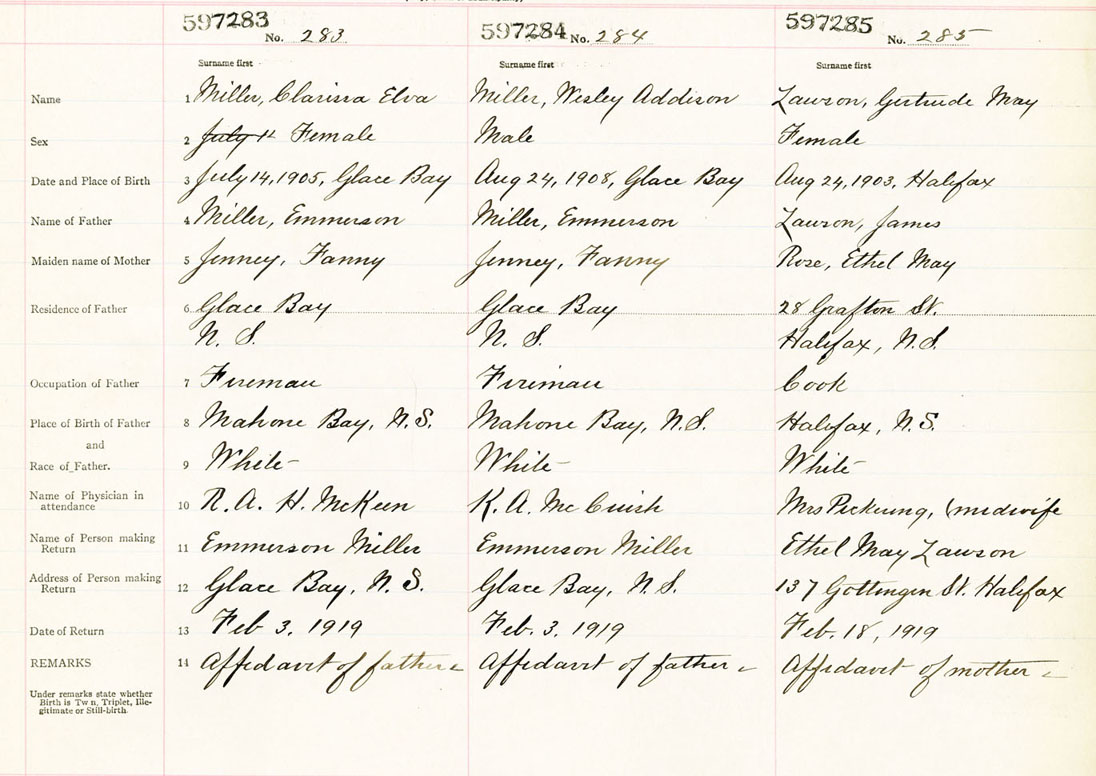 597283 597284 597285
No. 283 No. 284 No. 285
Surname first Surname first Surname first
Name 1 Miller, Clarissa Elva Miller, Wesley Addison Lawson, Gertrude May
Sex 2 July 14 Female Male Female
Date and Place of Birth 3 July 14, 1905, Glace Bay Aug 24, 1908, Glace Bay Aug 24, 1903, Halifax
Name of Father 4 Miller, Emmerson Miller, Emmerson Lawson, James
Maiden name of Mother 5 Jenney, Fanny Jenney, Fanny Rose, Ethel May
Residence of Father 6 Glace Bay Glace Bay 28 Grafton St.
N. S. N. S. Halifax, N.S.
Occupation of Father 7 Fireman Fireman Cook
Place of Birth of Father 8 Mahone Bay, N.S. Mahone Bay, N.S. Halifax, N.S.
and
Race of Father. 9 White White White
Name of Physician in
attendance 10 R. A. H. McKeen K. A. McCuish Mrs Pickering, (midwife
Name of Person making
Return 11 Emmerson Miller Emmerson Miller Ethel May Lawson
Address of Person making
Return 12 Glace Bay, N.S. Glace Bay, N.S. 137 Gottingen St. Halifax
Date of Return 13 Feb 3, 1919 Feb. 3, 1919 Feb. 18, 1919
REMARKS 14 Affidavit of father Affidavit of father Affidavit of mother
Under remarks state whether
Birth is Tw n, Triplet, Ille-
gitimate or Still-birth.